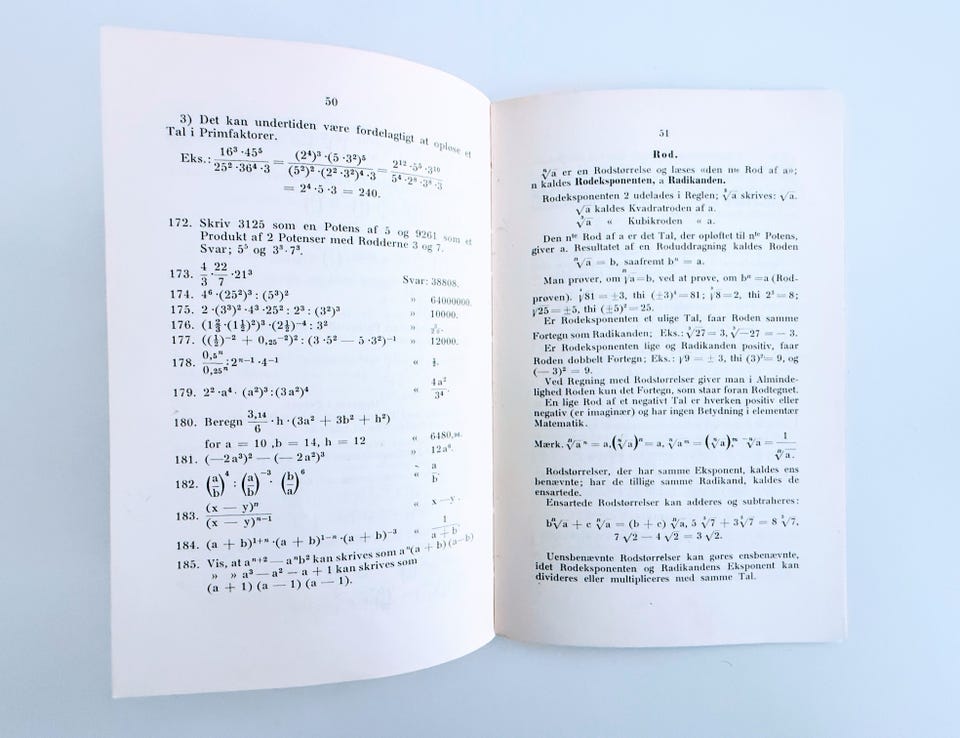 50
3) Det kan undertiden være fordelagtigt at opløse et
Tal i Primfaktorer.
Eks.: 16³·45⁵ / 25²·36⁴·3 = (2⁴)³·(5·3²)⁵ / (5²)²·(2²·3²)⁴·3 = 2¹²·5⁵·3¹⁰ / 5⁴·2⁸·3⁸·3
= 2⁴·5·3 = 240.
172. Skriv 3125 som en Potens af 5 og 9261 som et
Produkt af 2 Potenser med Rødderne 3 og 7.
Svar; 5⁵ og 3³·7³.
173. 4/3·22/7·21³ Svar: 38808.
174. 4⁶·(25²)³ : (5³)² » 64000000.
175. 2·(3³)²·4³·25² : 2³ : (3²)³ » 10000.
176. (1⅔·(1½)²)³·(2½)⁻⁴ : 3² »
177. ((½)⁻² + 0,25⁻²)² : (3·5² — 5·3²)⁻¹ » 12000.
178. 0,5ⁿ / 0,25ⁿ : 2ⁿ⁻¹·4⁻¹ «
179. 2²·a⁴·(a²)³ : (3a²)⁴ « 4a² / 3⁴.
180. Beregn 3,14/6·h·(3a² + 3b² + h²)
for a = 10 ,b = 14, h = 12 « 6480,96.
181. (—2a³)² — (— 2a²)³ » 12a⁶.
182. (a/b)⁴ : (a/b)⁻³·(b/a)⁶ « a/b
183. (x — y)ⁿ / (x — y)ⁿ⁻¹ « x—y.
184. (a + b)¹⁺ⁿ·(a + b)¹⁻ⁿ·(a + b)⁻³ « 1 / a+b.
185. Vis, at aⁿ⁺² — aⁿb² kan skrives som aⁿ(a + b) (a—b)
» » a³ — a² — a + 1 kan skrives som
(a + 1) (a — 1) (a — 1).
51
Rod.
ⁿ√a er en Rodstørrelse og læses «den nᵗᵉ Rod af a»;
n kaldes Rodeksponenten, a Radikanden.
Rodeksponenten 2 udelades i Reglen; ²√a skrives: √a.
√a kaldes Kvadratroden af a.
³√a « Kubikroden « a.
Den nᵗᵉ Rod af a er det Tal, der opløftet til nᵗᵉ Potens,
giver a. Resultatet af en Roduddragning kaldes Roden
ⁿ√a = b, saafremt bⁿ = a.
Man prøver, om ⁿ√a=b, ved at prøve, om bⁿ=a (Rod-
prøven). ⁴√81 = ±3, thi (±3)⁴=81; ³√8=2, thi 2³=8;
√25=±5, thi (±5)²=25.
Er Rodeksponenten et ulige Tal, faar Roden samme
Fortegn som Radikanden; Eks.: ³√27= 3, ³√—27= — 3.
Er Rodeksponenten lige og Radikanden positiv, faar
Roden dobbelt Fortegn; Eks.: √9 = ± 3, thi (3)²= 9, og
(— 3)² = 9.
Ved Regning med Rodstørrelser giver man i Alminde-
lighed Roden kun det Fortegn, som staar foran Rodtegnet.
En lige Rod af et negativt Tal er hverken positiv eller
negativ (er imaginær) og har ingen Betydning i elementær
Matematik.
Mærk. ⁿ√aⁿ = a,(ⁿ√a)ⁿ= a, ⁿ√aᵐ = (ⁿ√a)ᵐ. ⁻ⁿ√a = 1 / ⁿ√a.
Rodstørrelser, der har samme Eksponent, kaldes ens
benævnte; har de tillige samme Radikand, kaldes de
ensartede.
Ensartede Rodstørrelser kan adderes og subtraheres:
bⁿ√a + c ⁿ√a = (b + c) ⁿ√a, 5 ³√7 + 3³√7 = 8 ³√7,
7 √2 — 4 √2 = 3 √2.
Uensbenævnte Rodstørrelser kan gøres ensbenævnte,
idet Rodeksponenten og Radikandens Eksponent kan
divideres eller multipliceres med samme Tal.